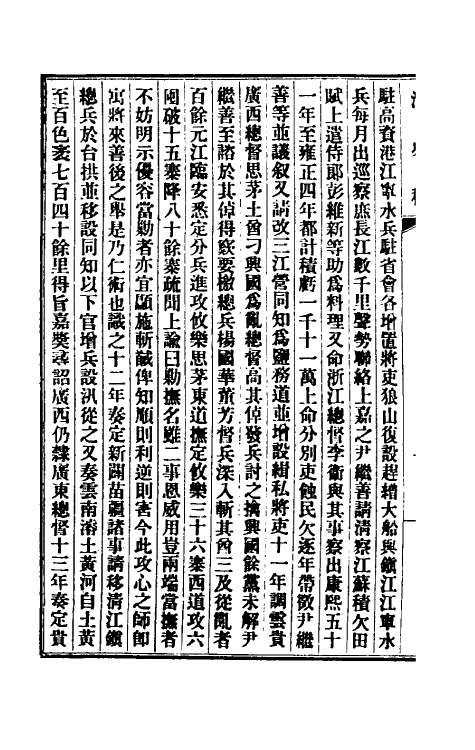 駐高資港江寧水兵駐省會各增置將吏狼山復設趕繒大船與鎮江江寧水
兵每月出巡察庶長江數千里聲勢聯絡上嘉之尹繼善請清察江蘇積欠田
賦上遣侍郎彭維新等助爲料理又命浙江總督李衞與其事察出康熙五十
一年至雍正四年都計積虧一千十一萬上命分別吏蝕民欠逐年帶徵尹繼
善等並議敘又請改三江營同知爲鹽務道並增設緝私將吏十一年調雲貴
廣西總督思茅土酋刁興國爲亂總督高其倬發兵討之擒興國餘黨未解尹
繼善至諮於其倬得窾要檄總兵楊國華董芳督兵深入斬其酋三及從亂者
百餘元江臨安悉定分兵進攻攸樂思茅東道撫定攸樂三十六寨西道攻六
囤破十五寨降八十餘寨疏聞上諭曰勦撫名雖二事恩威用豈兩端當撫者
不妨明示優容當勦者亦宜顯施斬馘俾知順則利逆則害今此攻心之師卽
寓將來善後之舉是乃仁術也識之十二年奏定新闢苗疆諸事請移清江鎮
總兵於台拱並移設同知以下官增兵設汛從之又奏雲南濬土黃河自土黃
至百色袤七百四十餘里得旨嘉獎尋詔廣西仍隸廣東總督十三年奏定貴